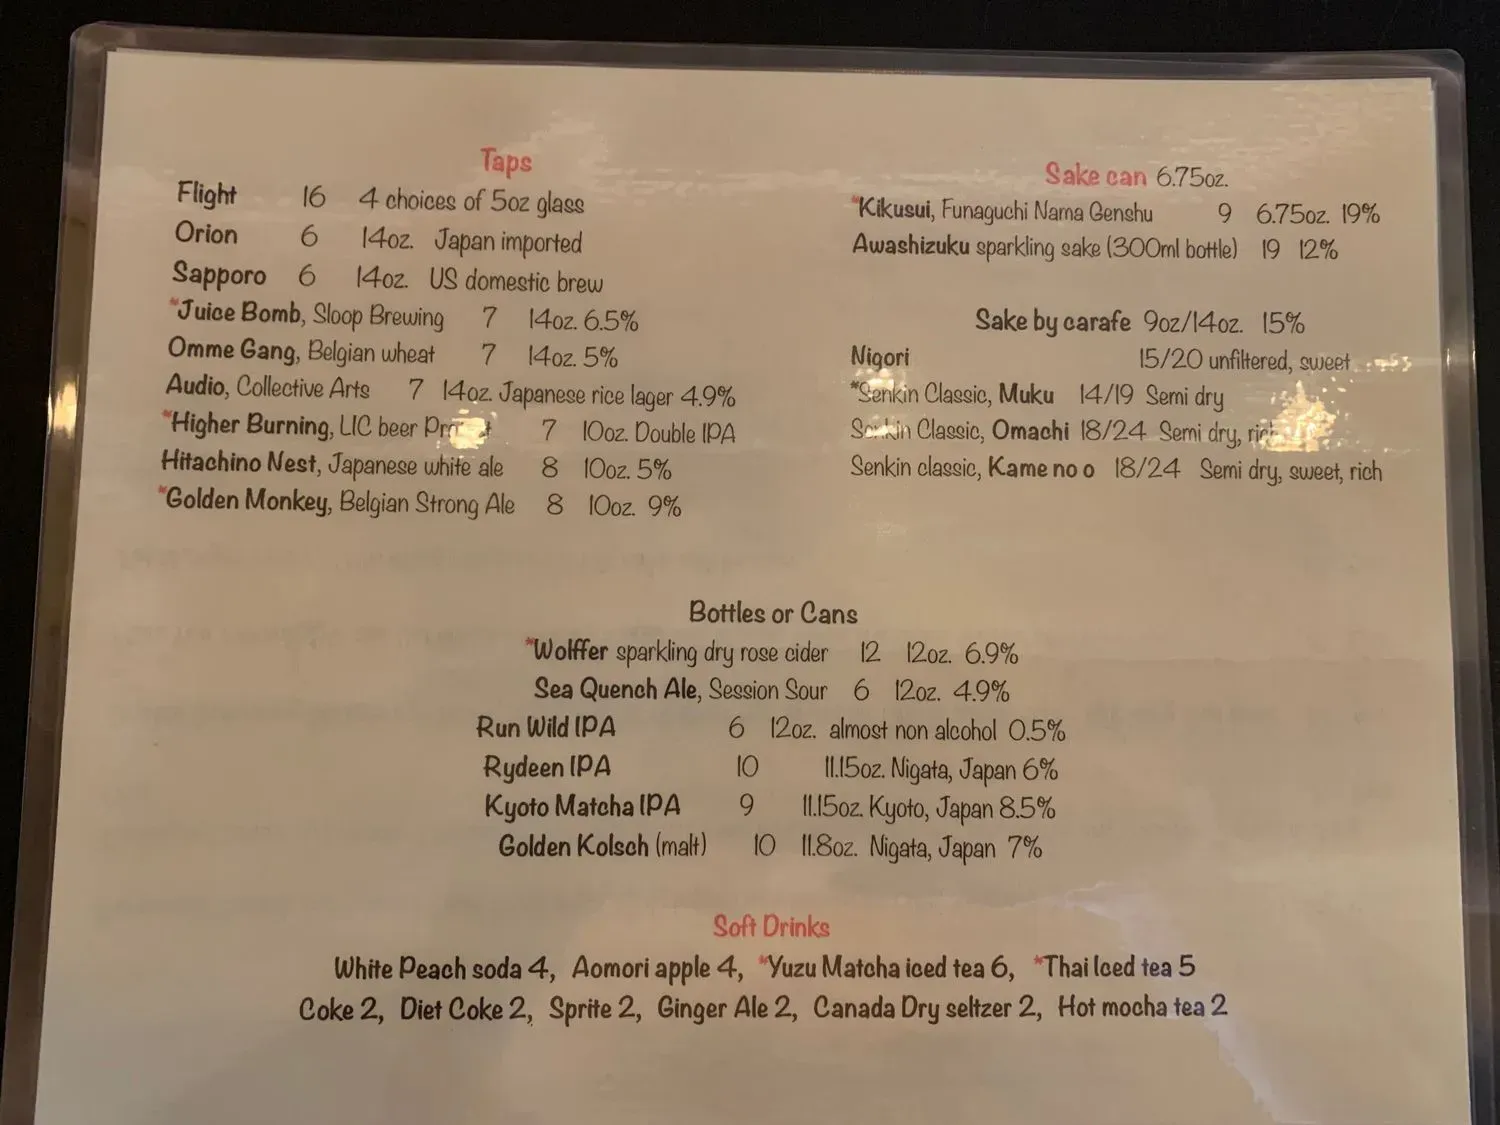 Taps
Flight 16 4 choices of 5oz glass
Orion 6 14oz. Japan imported
Sapporo 6 14oz. US domestic brew
*Juice Bomb, Sloop Brewing 7 14oz. 6.5%
Omme Gang, Belgian wheat 7 14oz. 5%
Audio, Collective Arts 7 14oz. Japanese rice lager 4.9%
*Higher Burning, LIC beer 7 10oz. Double IPA
Hitachino Nest, Japanese white ale 8 10oz. 5%
*Golden Monkey, Belgian Strong Ale 8 10oz. 9%
Sake can 6.75oz.
*Kikusui, Funaguchi Nama Genshu 9 6.75oz. 19%
Awashizuku sparkling sake (300ml bottle) 19 12%
Sake by carafe 9oz/14oz. 15%
Nigori 15/20 unfiltered, sweet
*Senkin Classic, Muku 14/19 Semi dry
Senkin Classic, Omachi 18/24 Semi dry, rich
Senkin classic, Kame no o 18/24 Semi dry, sweet, rich
Bottles or Cans
*Wolffer sparkling dry rose cider 12 12oz. 6.9%
Sea Quench Ale, Session Sour 6 12oz. 4.9%
Run Wild IPA 6 12oz. almost non alcohol 0.5%
Rydeen IPA 10 11.15oz. Nigata, Japan 6%
Kyoto Matcha IPA 9 11.15oz. Kyoto, Japan 8.5%
Golden Kolsch (malt) 10 11.8oz. Nigata, Japan 7%
Soft Drinks
White Peach soda 4, Aomori apple 4, *Yuzu Matcha iced tea 6, *Thai Iced tea 5
Coke 2, Diet Coke 2, Sprite 2, Ginger Ale 2, Canada Dry seltzer 2, Hot mocha tea 2